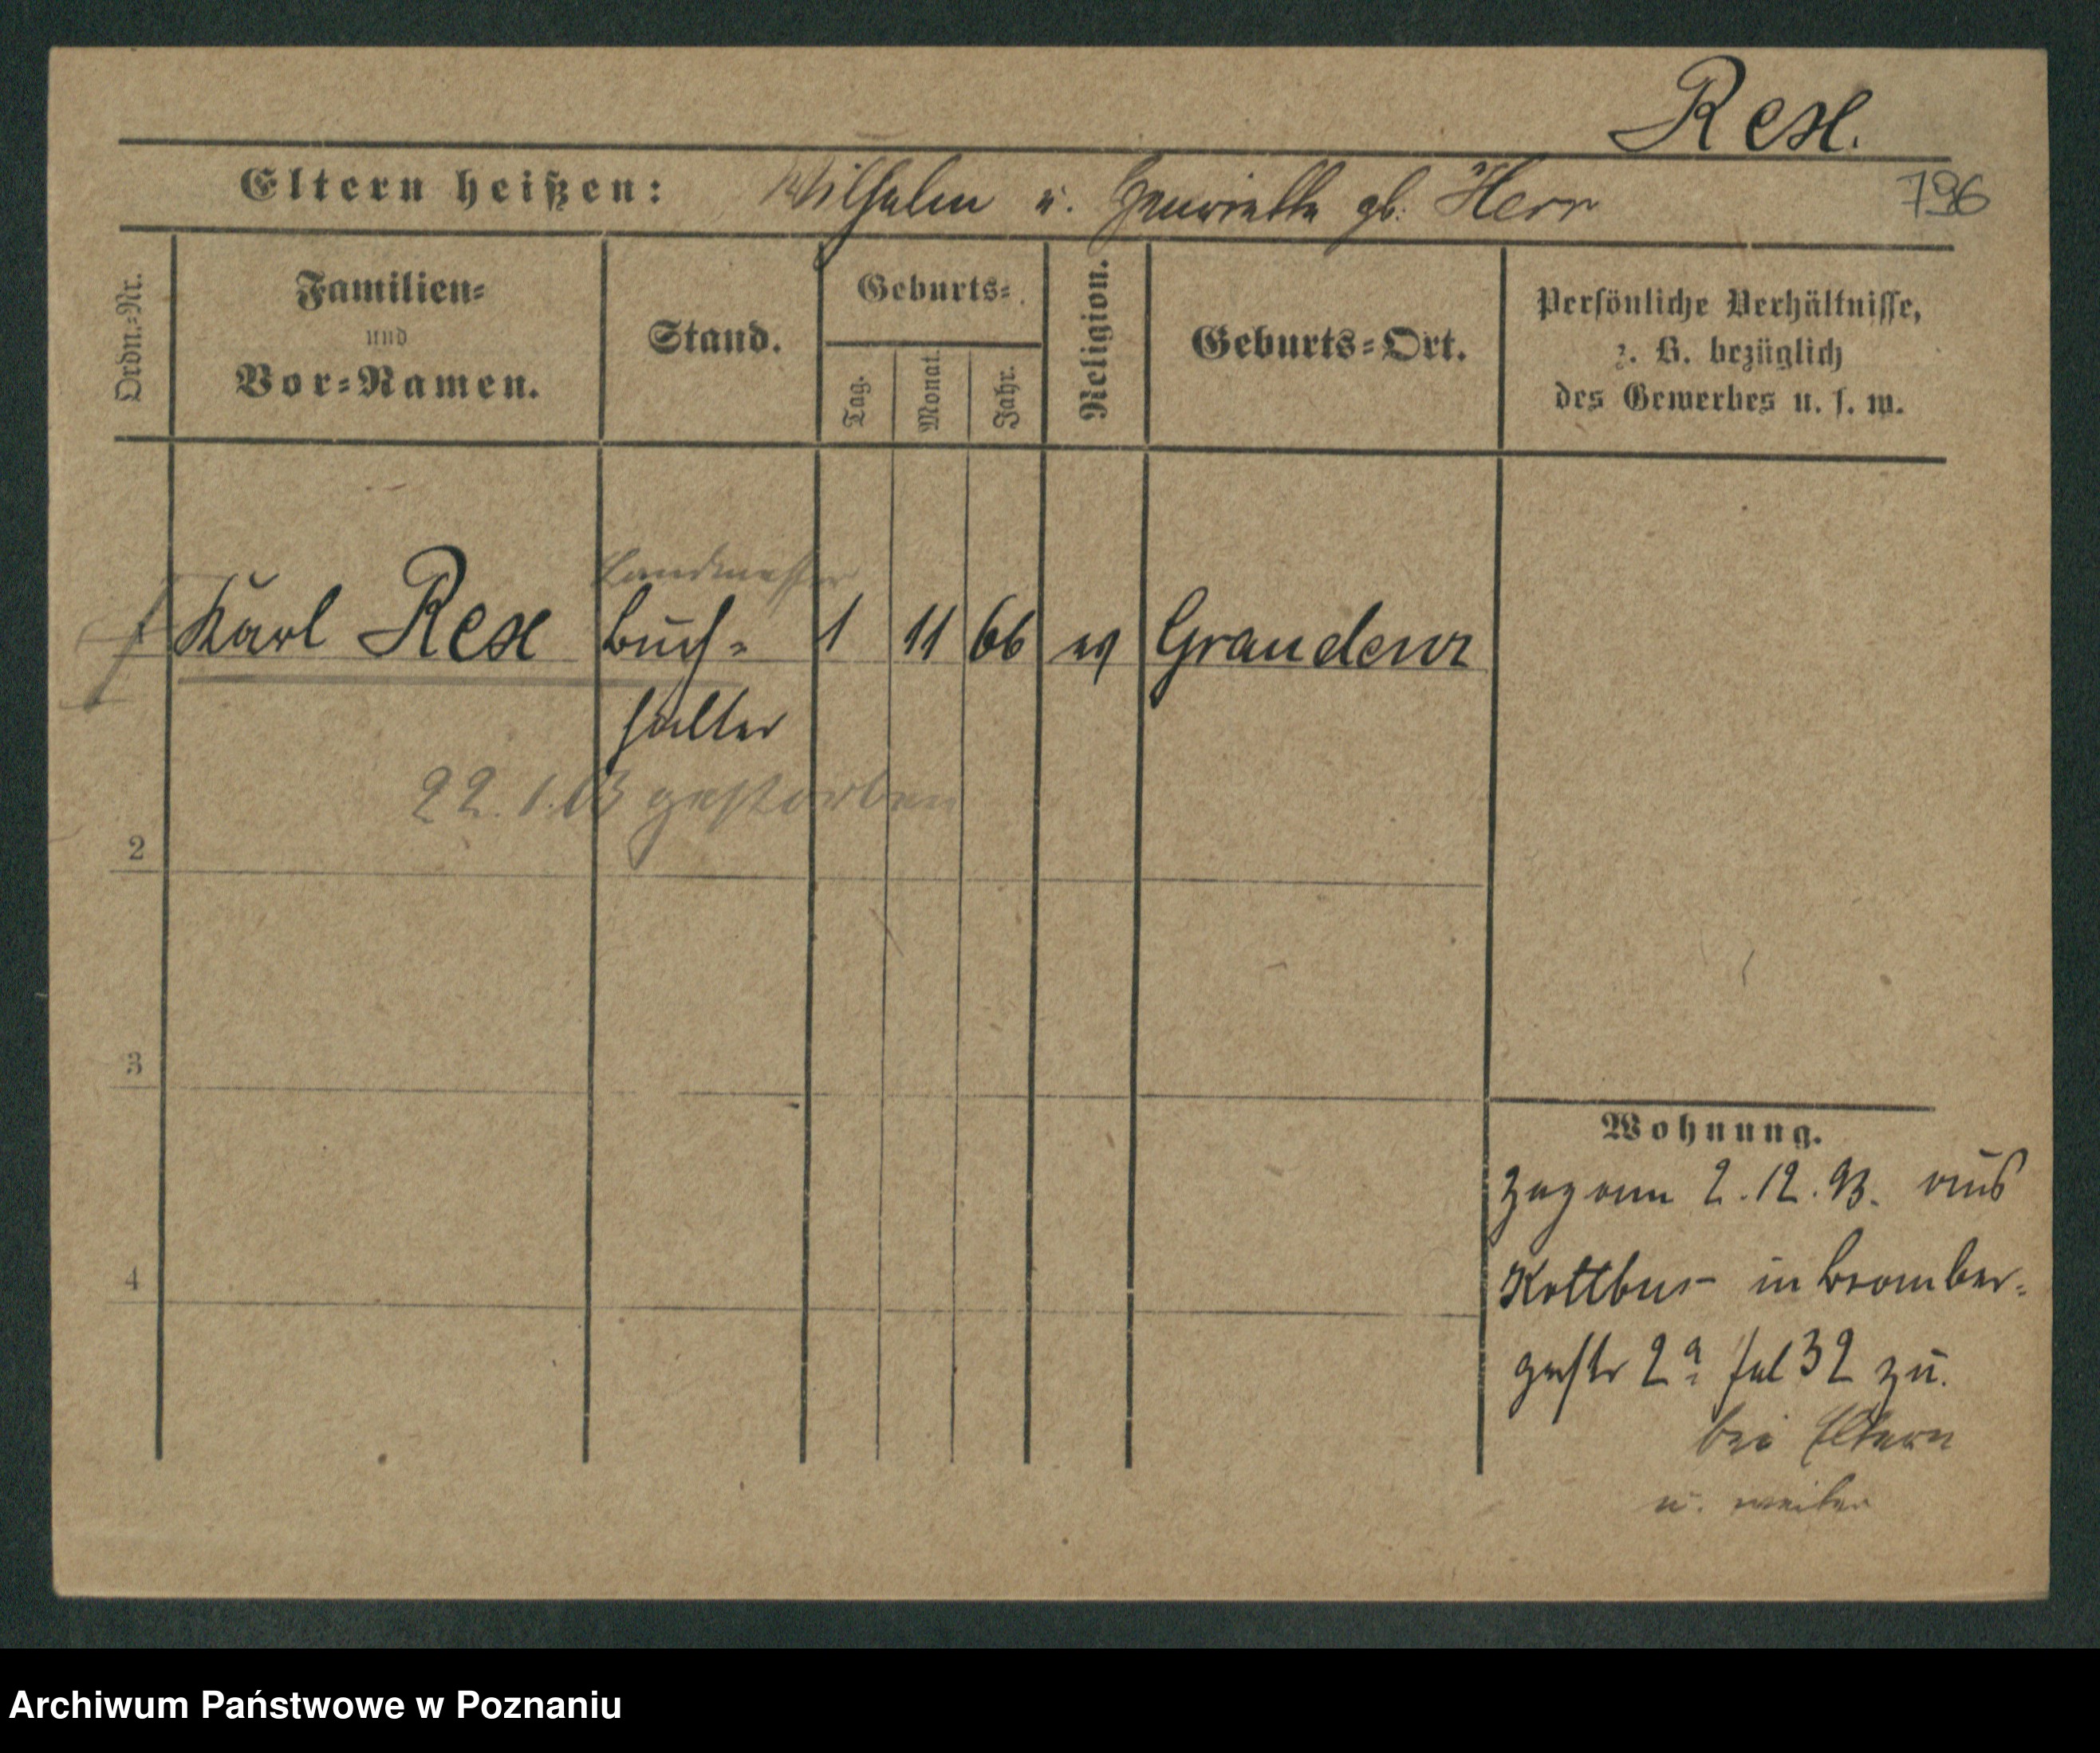 Rex.
Eltern heißen: Wilhelm u. Henriette gb. Herr
796
Ordn.-Nr.
Familien-
und
Vor-Namen.
Stand.
Geburts-
Tag.
Monat.
Jahr.
Religion.
Geburts-Ort.
Persönliche Verhältnisse,
z. B. bezüglich
des Gewerbes u. s. w.
Landmesser
Karl Rex Buch- 1 11 66 ev Graudenz
halter
22.1.03 gestorben
2
3
4
Wohnung.
2.12.93. aus
Kottbus in Bromber-
gerstr 2a 32 zu.
bei Eltern
u. weiter
Archiwum Państwowe w Poznaniu